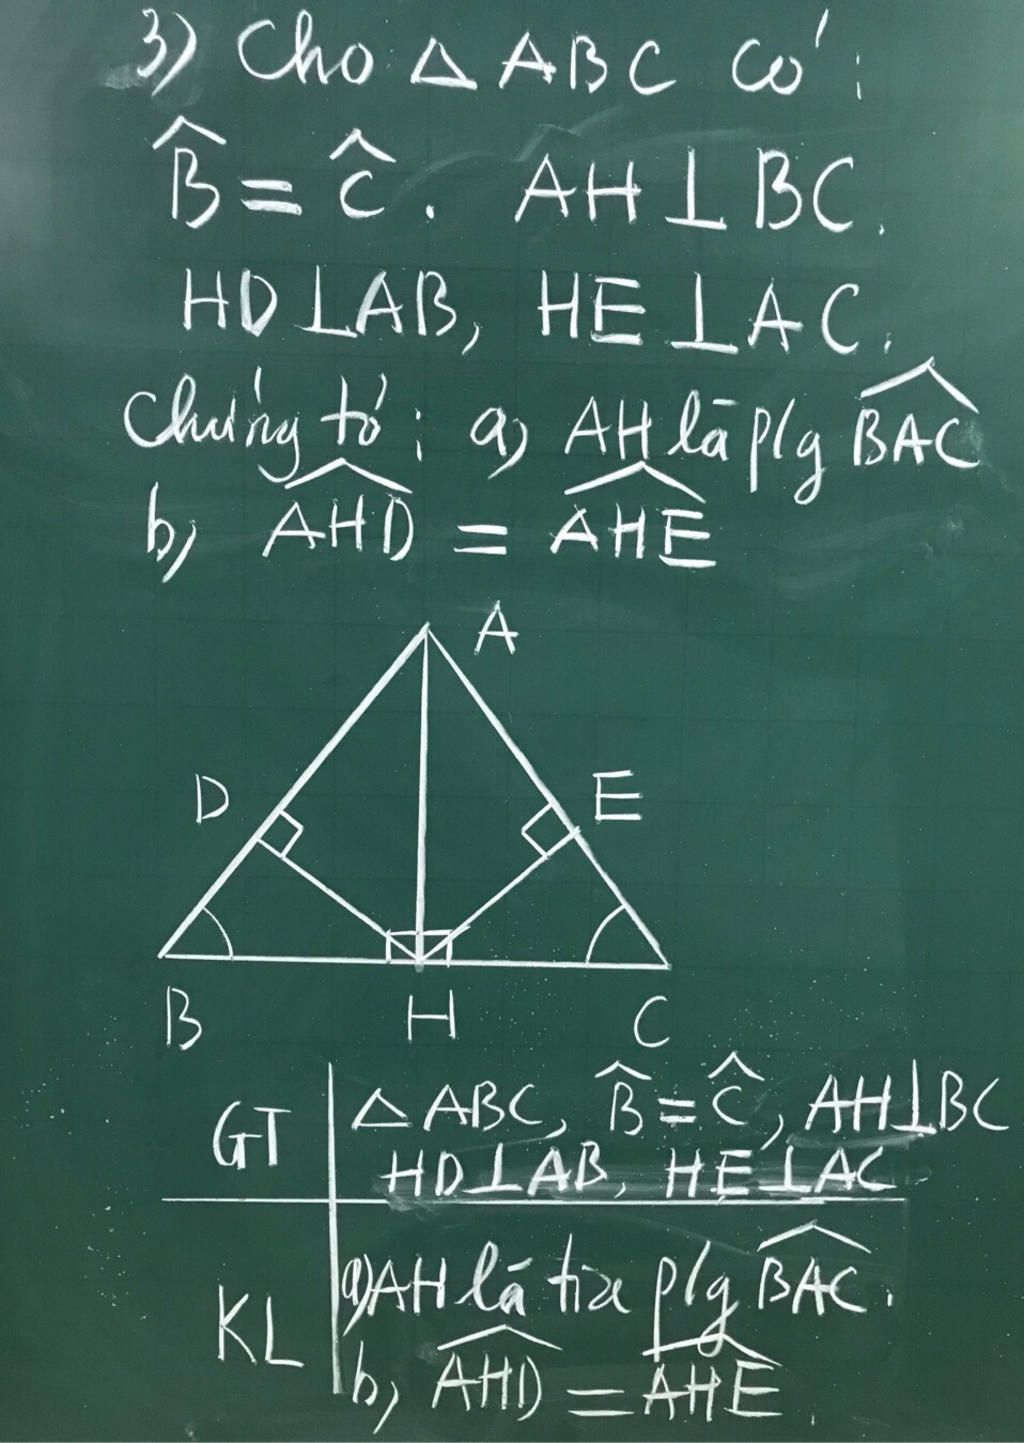 3) Cho △ ABC có:
B̂ = Ĉ. AH ⊥ BC.
HD ⊥ AB, HE ⊥ AC.
Chứng tỏ: a) AH là p/g \widehat{BAC}
b) \widehat{AHD} = \widehat{AHE}
A
D E
B H C
GT △ ABC, B̂ = Ĉ, AH ⊥ BC
HD ⊥ AB, HE ⊥ AC
KL a) AH là tia p/g \widehat{BAC}.
b) \widehat{AHD} = \widehat{AHE}.